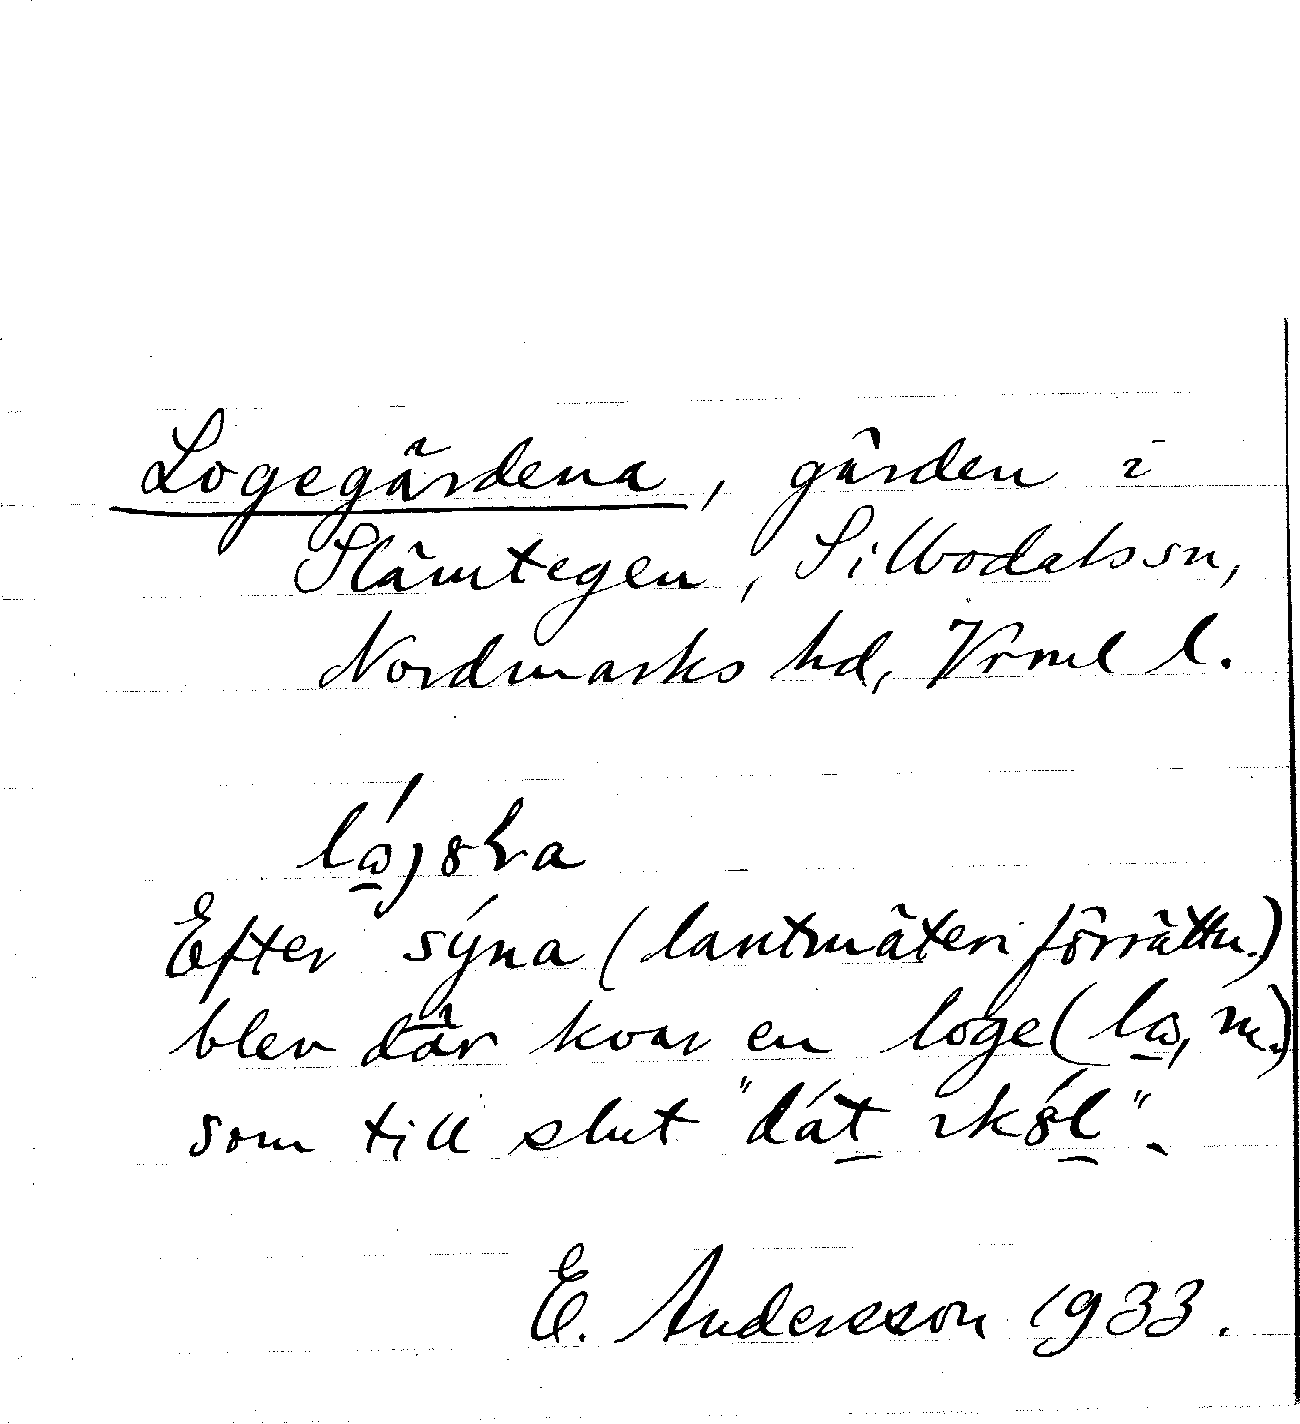 Logegärdena, gärden i
Slämtegen, Silbodalssn,
Nordmarks hd, Vrml l.
Efter sýna (lantmäteriförrättn.)
blev där kvar en loge (lɷ, m.)
som till slut "dát ikɤ́l".
E. Andersson 1933.